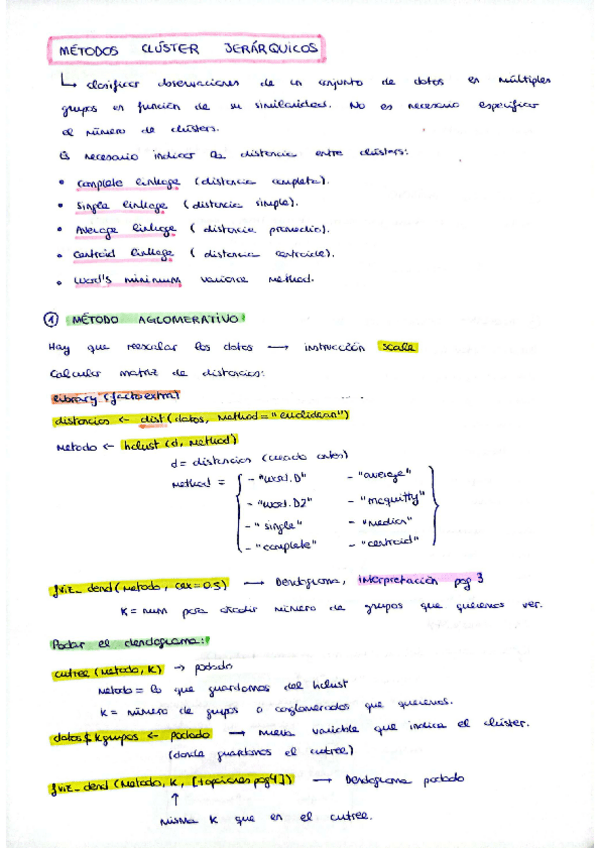 MÉTODOS CLÚSTER JERÁRQUICOS
↳ clasificar observaciones de un conjunto de datos en múltiples
grupos en función de su similaridad. No es necesario especificar
el número de clústers.
Es necesario indicar la distancia entre clústers:
• Complete linkage (distancia completa).
• Single linkage (distancia simple).
• Average linkage (distancia promedio).
• Centroid linkage (distancia centroide).
• Ward's minimum variance method.
① MÉTODO AGLOMERATIVO
Hay que reescalar los datos → instrucción scale
Calcular matriz de distancias:
library (factoextra)
distancias <- dist(datos, method="euclidean")
Metodo <- hclust (d, method)
d= distancias (creado antes)
method = { -"ward.D" - "average"
- "ward.D2" - "mcquitty"
- "single" - "median"
- "complete" - "centroid" }
fviz_dend(metodo, cex=0.5) → Dendograma, interpretación pag 3
K= num para añadir número de grupos que queremos ver.
Podar el dendograma:
cutree (metodo, K) → podado
metodo = lo que guardamos del hclust
K = número de grupos o conglomerados que queremos.
datos$Kgrupos <- podado → nueva variable que indica el clúster.
(donde guardamos el cutree)
fviz_dend (metodo, K, [+opciones pag4]) → Dendograma podado
↑
misma K que en el cutree.